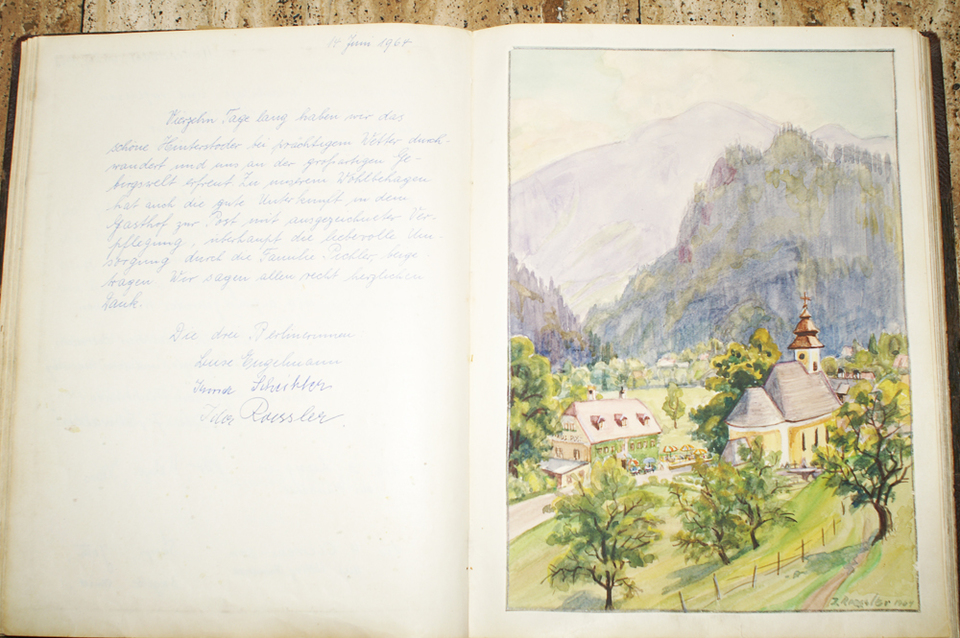 14 Juni 1964
Vierzehn Tage lang haben wir das
schöne Hinterstoder bei prächtigem Wetter durch-
wandert und uns an der großartigen Ge-
birgswelt erfreut. Zu unserem Wohlbehagen
hat auch die gute Unterkunft in dem
Gasthof zur Post mit ausgezeichneter Ver-
pflegung, überhaupt die liebevolle Um-
sorgung durch die Familie Pichler beige-
tragen. Wir sagen allen recht herzlichen
Dank.
Die drei Berlinerinnen
Luise Engelmann
Irma
Ida Roessler
J. Roessler 1964